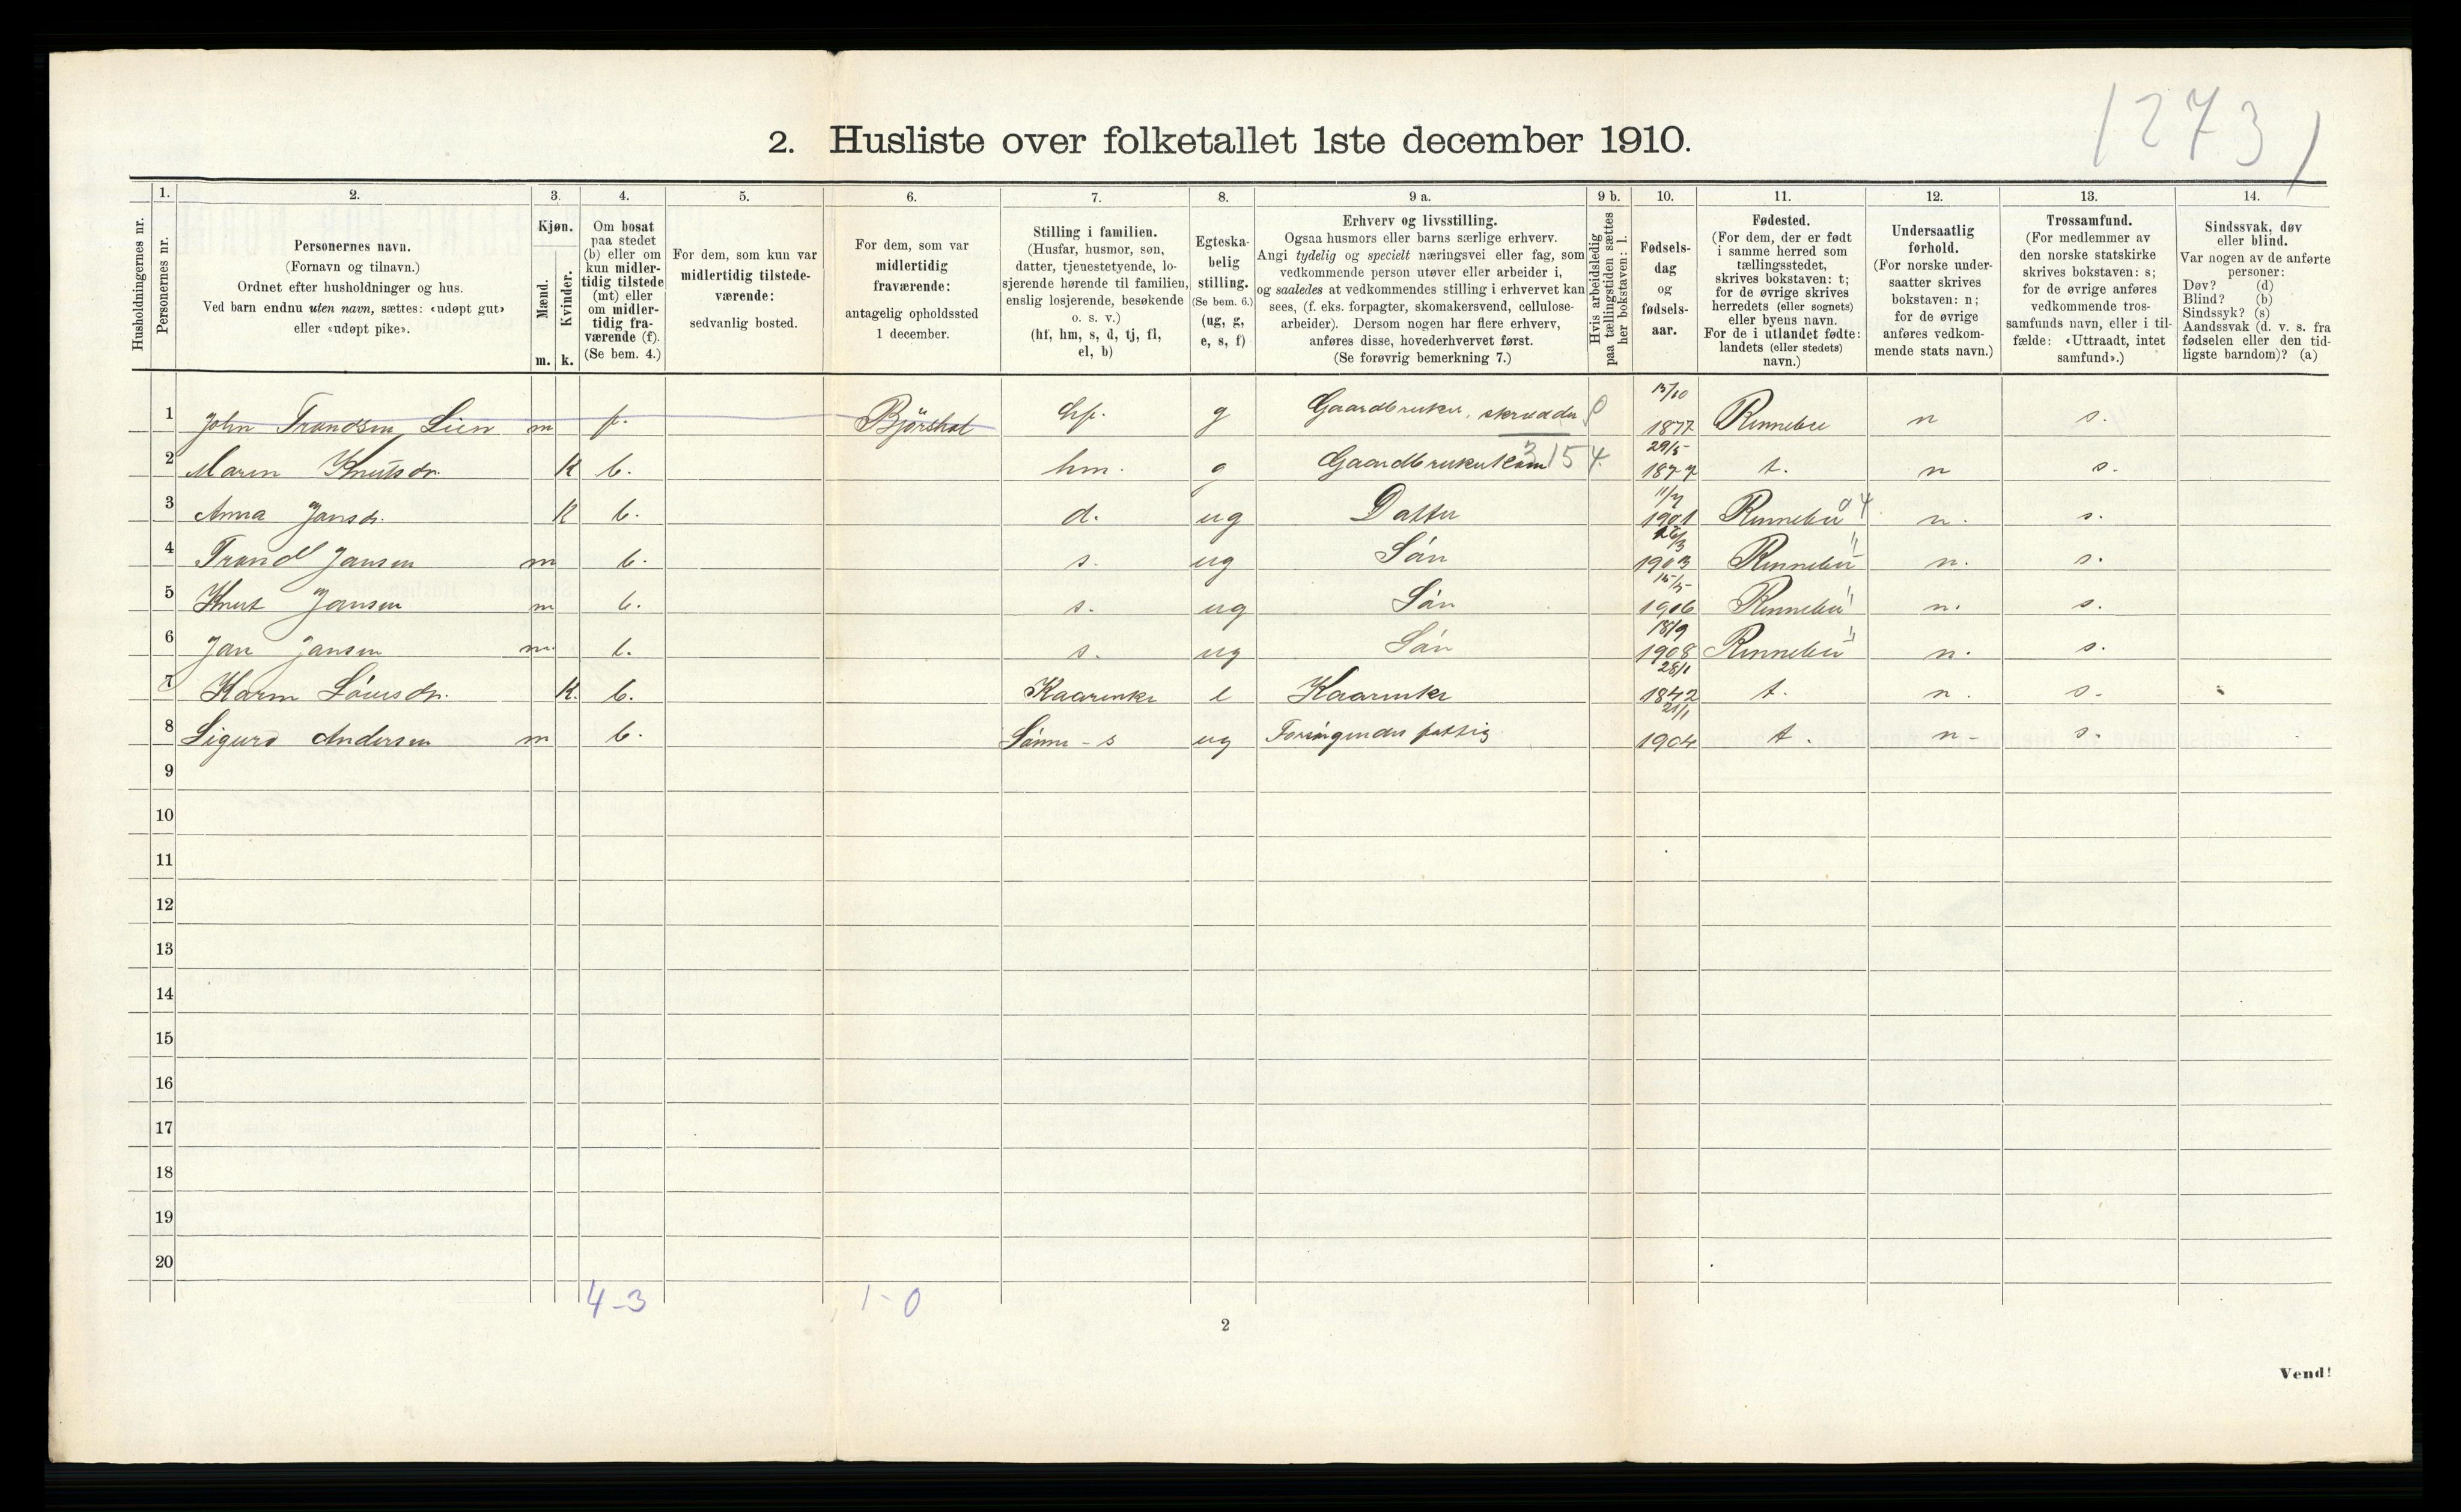 1273 1
2. Husliste over folketallet 1ste december 1910.
1. 2. 3. 4. 5. 6. 7. 8. 9 a. 9 b. 10. 11. 12. 13. 14.
Husholdningernes nr.
Personernes nr.
Personernes navn.
(Fornavn og tilnavn.)
Ordnet efter husholdninger og hus.
Ved barn endnu uten navn, sættes: «udøpt gut»
eller «udøpt pike».
Kjøn.
Mænd.
Kvinder.
m. k.
Om bosat
paa stedet
(b) eller om
kun midler-
tidig tilstede
(mt) eller
om midler-
tidig fra-
værende (f).
(Se bem. 4.)
For dem, som kun var
midlertidig tilstede-
værende:
sedvanlig bosted.
For dem, som var
midlertidig
fraværende:
antagelig opholdssted
1 december.
Stilling i familien.
(Husfar, husmor, søn,
datter, tjenestetyende, lo-
sjerende hørende til familien,
enslig losjerende, besøkende
o. s. v.)
(hf, hm, s, d, tj, fl,
el, b)
Egteska-
belig
stilling.
(Se bem. 6.)
(ug, g,
e, s, f)
Erhverv og livsstilling.
Ogsaa husmors eller barns særlige erhverv.
Angi tydelig og specielt næringsvei eller fag, som
vedkommende person utøver eller arbeider i,
og saaledes at vedkommendes stilling i erhvervet kan
sees, (f. eks. forpagter, skomakersvend, cellulose-
arbeider). Dersom nogen har flere erhverv,
anføres disse, hovederhvervet først.
(Se forøvrig bemerkning 7.)
Hvis arbeidsledig
paa tællingstiden sættes
her bokstaven: l.
Fødsels-
dag
og
fødsels-
aar.
Fødested.
(For dem, der er født
i samme herred som
tællingsstedet,
skrives bokstaven: t;
for de øvrige skrives
herredets (eller sognets)
eller byens navn.
For de i utlandet fødte:
landets (eller stedets)
navn.)
Undersaatlig
forhold.
(For norske under-
saatter skrives
bokstaven: n;
for de øvrige
anføres vedkom-
mende stats navn.)
Trossamfund.
(For medlemmer av
den norske statskirke
skrives bokstaven: s;
for de øvrige anføres
vedkommende tros-
samfunds navn, eller i til-
fælde: «Uttraadt, intet
samfund».)
Sindssvak, døv
eller blind.
Var nogen av de anførte
personer:
Døv? (d)
Blind? (b)
Sindssyk? (s)
Aandssvak (d. v. s. fra
fødselen eller den tid-
ligste barndom)? (a)
1 John Trondsen Lien m f. Björskol hf. g Gaardbruker, skrædder 0 13/10 1877 Rennebu n s.
2 Maren Knutsdr. k b. hm. g Gaardbrukerkone 3154. 29/5 1877 t. n s.
3 Anna Jansdr. k b. d. ug Datter 11/7 1901 Rennebu 04 n. s.
4 Trond Jansen m b. s. ug Sön 26/3 1903 Rennebu " n. s.
5 Knut Jansen m b. s. ug Sön 15/5 1906 Rennebu " n. s.
6 Jan Jansen m. b. s. ug Sön 18/9 1908 Rennebu " n. s.
7 Karen k. b. Kaarenke e Kaarenke 28/1 1842 t. n. s.
8 Sigurd Andersen m b. ug fattig 21/1 1904 t. n s.
9
10
11
12
13
14
15
16
17
18
19
20
4-3 1-0
2
Vend!